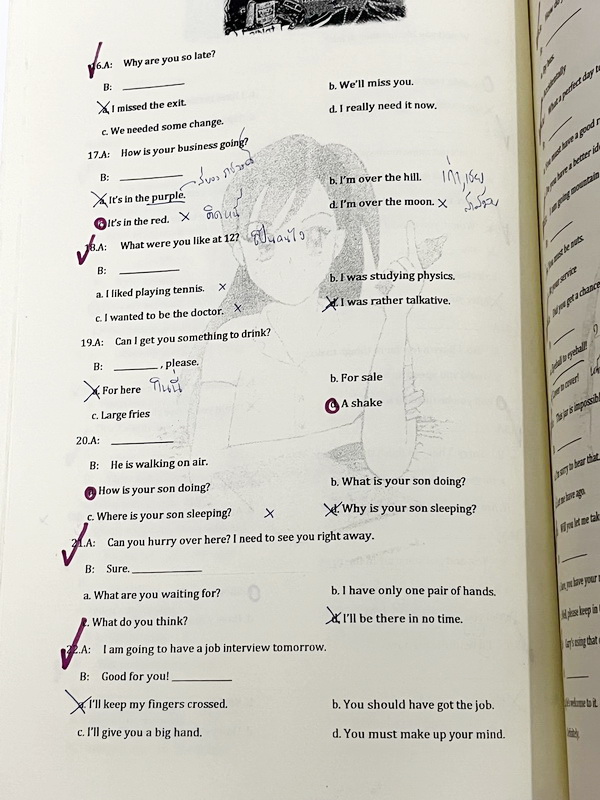 16.A: Why are you so late?
B: ____________
a. I missed the exit. b. We'll miss you.
c. We needed some change. d. I really need it now.
17.A: How is your business going?
B: ____________
a. It's in the purple. b. I'm over the hill. เก่า,
c. It's in the red. × ติดหนี้ d. I'm over the moon. ×
18.A: What were you like at 12? เป็นคนไง
B: ____________
a. I liked playing tennis. × b. I was studying physics.
c. I wanted to be the doctor. × d. I was rather talkative.
19.A: Can I get you something to drink?
B: ________ , please.
a. For here กินนี่ b. For sale
c. Large fries d. A shake
20.A: ____________
B: He is walking on air.
a. How is your son doing? b. What is your son doing?
c. Where is your son sleeping? × d. Why is your son sleeping?
21.A: Can you hurry over here? I need to see you right away.
B: Sure. ____________
a. What are you waiting for? b. I have only one pair of hands.
c. What do you think? d. I'll be there in no time.
22.A: I am going to have a job interview tomorrow.
B: Good for you! ____________
a. I'll keep my fingers crossed. b. You should have got the job.
c. I'll give you a big hand. d. You must make up your mind.